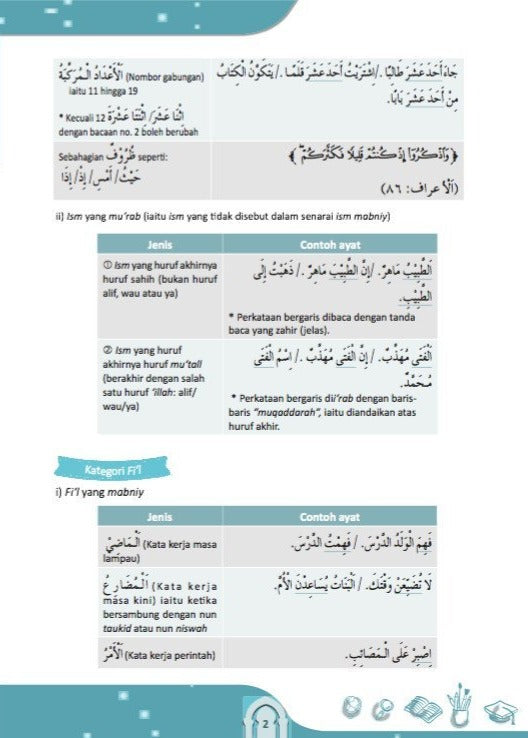 اَلْأَعْدَادُ الْمُرَكَّبَةُ (Nombor gabungan)
iaitu 11 hingga 19
* Kecuali 12 اِثْنَا عَشَرَ/ اِثْنَتَا عَشْرَةَ
dengan bacaan no. 2 boleh berubah
جَاءَ أَحَدَ عَشَرَ طَالِبًا ./اِشْتَرَيْتُ أَحَدَ عَشَرَ قَلَمًا ./ يَتَكَوَّنُ الْكِتَابُ
مِنْ أَحَدَ عَشَرَ بَابًا.
Sebahagian ظُرُوْفٌ seperti:
حَيْثُ/ أَمْسِ/ إِذْ/ إِذَا
﴿ وَاذْكُرُوٓا۟ إِذْ كُنتُمْ قَلِيلًا فَكَثَّرَكُمْ ﴾
(اَلْأعراف: ٨٦)
ii) Ism yang mu'rab (iaitu ism yang tidak disebut dalam senarai ism mabniy)
Jenis
Contoh ayat
① Ism yang huruf akhirnya
huruf sahih (bukan huruf
alif, wau atau ya)
اَلطَّبِيْبُ مَاهِرٌ. /إِنَّ الطَّبِيْبَ مَاهِرٌ ./ ذَهَبْتُ إِلَى
الطَّبِيْبِ.
* Perkataan bergaris dibaca dengan tanda
baca yang zahir (jelas).
② Ism yang huruf
akhirnya huruf mu'tall
(berakhir dengan salah
satu huruf 'illah: alif/
wau/ya)
اَلْفَتَى مُهَذَّبٌ. / إِنَّ الْفَتَى مُهَذَّبٌ ./ اِسْمُ الْفَتَى
مُحَمَّدٌ.
* Perkataan bergaris dii'rab dengan baris-
baris "muqaddarah", iaitu diandaikan atas
huruf akhir.
Kategori Fi'l
i) Fi'l yang mabniy
Jenis
Contoh ayat
اَلْمَاضِيْ (Kata kerja masa
lampau)
فَهِمَ الْوَلَدُ الدَّرْسَ. / فَهِمْتُ الدَّرْسَ.
اَلْمُضَارِعُ (Kata kerja
masa kini) iaitu ketika
bersambung dengan nun
taukid atau nun niswah
لَا تُضَيِّعَنَّ وَقْتَكَ. / اَلْبَنَاتُ يُسَاعِدْنَ الْأُمَّ.
اَلْأَمْرُ (Kata kerja perintah)
اِصْبِرْ عَلَى الْمَصَائِبِ.
2